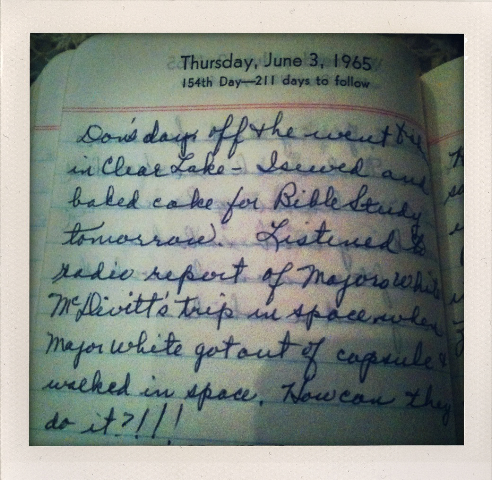 Thursday, June 3, 1965
154th Day—211 days to follow
Don's day off & he went
in Clear Lake - I sewed and
baked cake for Bible Study
tomorrow. Listened to
radio report of Majors White
McDivitt's trip in space when
Major White got out of capsule &
walked in space. How can they
do it?!!!